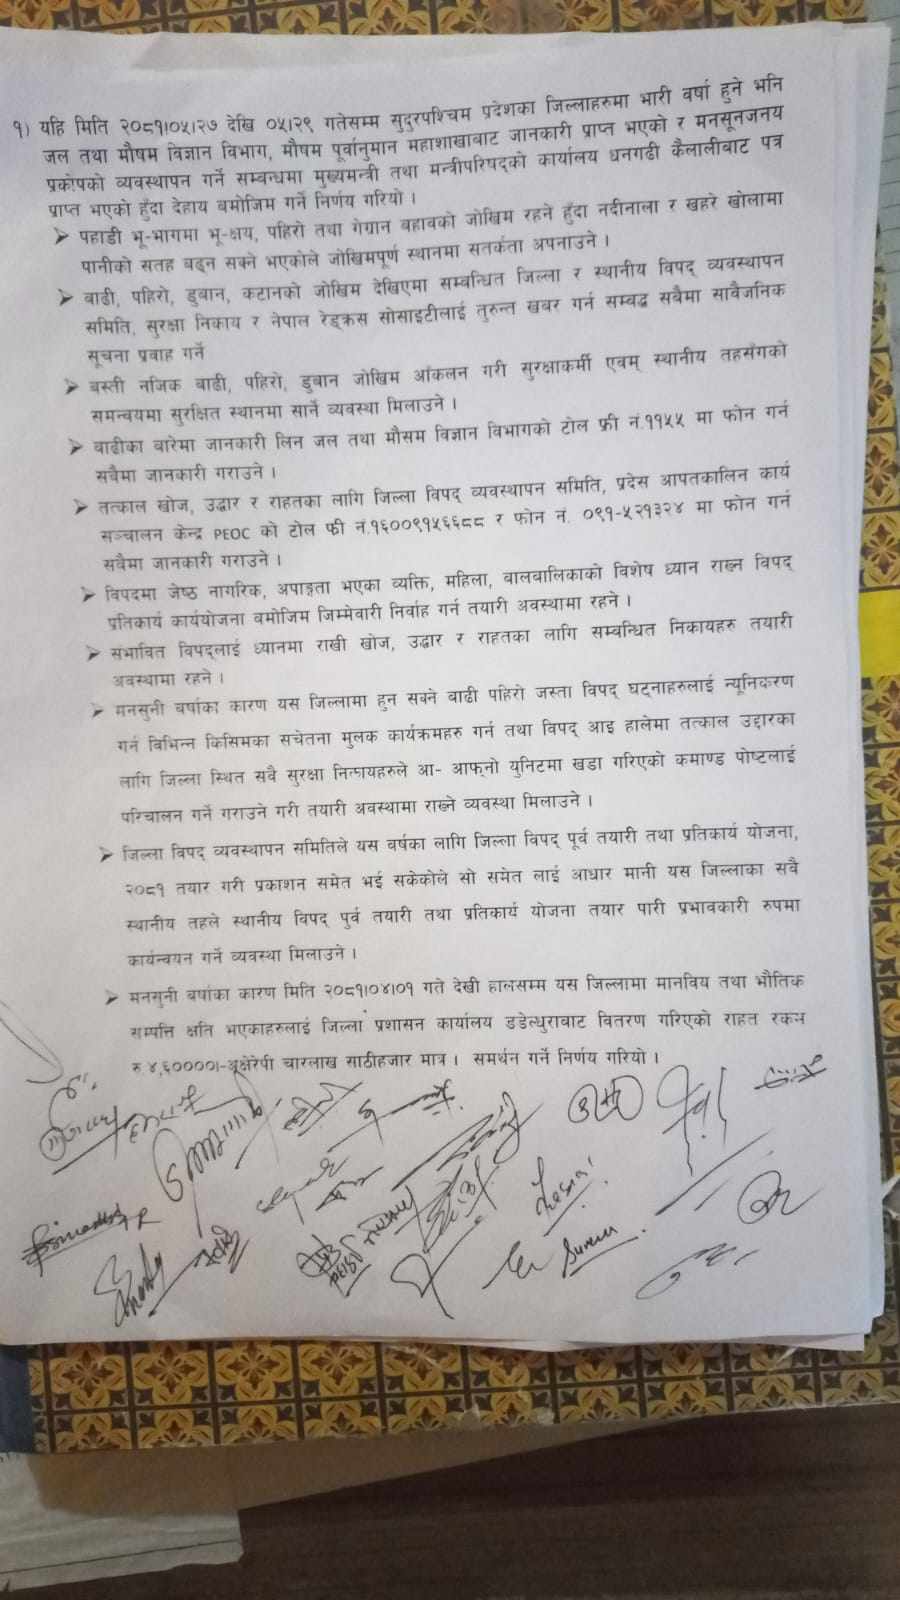 १) यहि मिति २०८१।०५।२७ देखि ०५।२९ गतेसम्म सुदुरपश्चिम प्रदेशका जिल्लाहरुमा भारी वर्षा हुने भनि
जल तथा मौषम विज्ञान विभाग, मौषम पूर्वानुमान महाशाखाबाट जानकारी प्राप्त भएको र मनसूनजनय
प्रकोपको व्यवस्थापन गर्ने सम्बन्धमा मुख्यमन्त्री तथा मन्त्रीपरिषद्को कार्यालय धनगढी कैलालीबाट पत्र
प्राप्त भएको हुँदा देहाय बमोजिम गर्ने निर्णय गरियो ।
➤ पहाडी भू-भागमा भू-क्षय, पहिरो तथा गेग्रान बहावको जोखिम रहने हुँदा नदीनाला र खहरे खोलामा
पानीको सतह बढ्न सक्ने भएकोले जोखिमपूर्ण स्थानमा सतर्कता अपनाउने ।
➤ बाढी, पहिरो, डुबान, कटानको जोखिम देखिएमा सम्बन्धित जिल्ला र स्थानीय विपद् व्यवस्थापन
समिति, सुरक्षा निकाय र नेपाल रेड्क्रस सोसाइटीलाई तुरुन्त खबर गर्न सम्बद्ध सबैमा सार्वजनिक
सूचना प्रवाह गर्ने
➤ बस्ती नजिक बाढी, पहिरो, डुबान जोखिम आँकलन गरी सुरक्षाकर्मी एवम् स्थानीय तहसँगको
समन्वयमा सुरक्षित स्थानमा सार्ने व्यवस्था मिलाउने ।
➤ बाढीका बारेमा जानकारी लिन जल तथा मौसम विज्ञान विभागको टोल फ्री नं.११५५ मा फोन गर्न
सबैमा जानकारी गराउने ।
➤ तत्काल खोज, उद्धार र राहतका लागि जिल्ला विपद् व्यवस्थापन समिति, प्रदेस आपतकालिन कार्य
सञ्चालन केन्द्र PEOC को टोल फ्री नं.१६००९१५६६८८ र फोन नं. ०९१-५२१३२४ मा फोन गर्न
सबैमा जानकारी गराउने ।
➤ विपदमा जेष्ठ नागरिक, अपाङ्गता भएका व्यक्ति, महिला, बालबालिकाको विशेष ध्यान राख्न विपद्
प्रतिकार्य कार्ययोजना बमोजिम जिम्मेवारी निर्वाह गर्न तयारी अवस्थामा रहने ।
➤ संभावित विपद्लाई ध्यानमा राखी खोज, उद्धार र राहतका लागि सम्बन्धित निकायहरु तयारी
अवस्थामा रहने ।
➤ मनसुनी बर्षाका कारण यस जिल्लामा हुन सक्ने बाढी पहिरो जस्ता विपद् घट्नाहरुलाई न्यूनिकरण
गर्न विभिन्न किसिमका सचेतना मुलक कार्यक्रमहरु गर्न तथा विपद् आइ हालेमा तत्काल उद्दारका
लागि जिल्ला स्थित सवै सुरक्षा निकायहरुले आ- आफ्नो युनिटमा खडा गरिएको कमाण्ड पोष्टलाई
परिचालन गर्ने गराउने गरी तयारी अवस्थामा राख्ने व्यवस्था मिलाउने ।
➤ जिल्ला विपद् व्यवस्थापन समितिले यस वर्षका लागि जिल्ला विपद् पूर्व तयारी तथा प्रतिकार्य योजना,
२०८१ तयार गरी प्रकाशन समेत भई सकेकोले सो समेत लाई आधार मानी यस जिल्लाका सवै
स्थानीय तहले स्थानीय विपद् पुर्व तयारी तथा प्रतिकार्य योजना तयार पारी प्रभावकारी रुपमा
कार्यन्वयन गर्ने व्यवस्था मिलाउने ।
➤ मनसुनी बर्षाका कारण मिति २०८१।०४।०१ गते देखी हालसम्म यस जिल्लामा मानविय तथा भौतिक
सम्पत्ति क्षति भएकाहरुलाई जिल्ला प्रशासन कार्यालय डडेल्धुराबाट वितरण गरिएको राहत रकम
रु.४,६००००।-अक्षेरेपी चारलाख साठीहजार मात्र । समर्थन गर्ने निर्णय गरियो ।